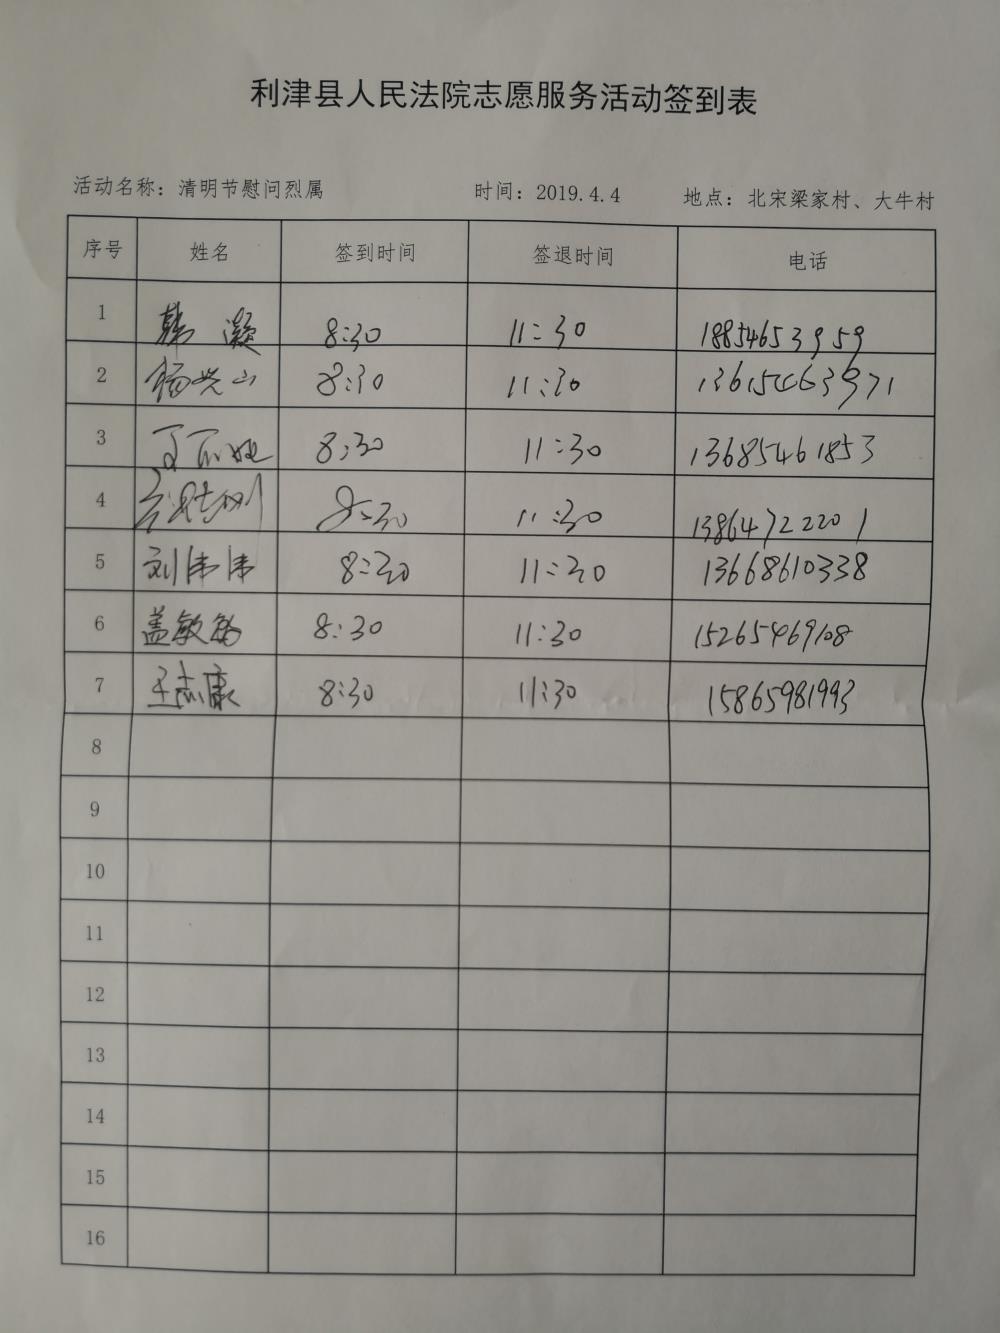 利津县人民法院志愿服务活动签到表
活动名称：清明节慰问烈属 时间：2019.4.4 地点：北宋梁家村、大牛村
序号 姓名 签到时间 签退时间 电话
1 韩凝 8:30 11:30 18854653959
2 杨兴山 8:30 11:30
3 8:30 11:30 13685461853
4 8:30 11:30 13864722201
5 刘伟伟 8:30 11:30 13668610338
6 盖敏敏 8:30 11:30 15265469108
7 王志康 8:30 11:30 15865981993
8
9
10
11
12
13
14
15
16